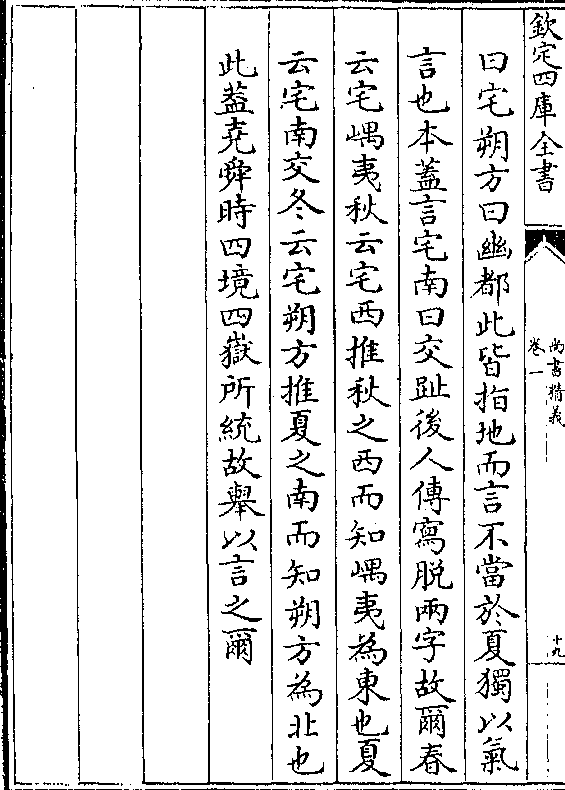 欽定四庫全書
尚書精義
卷一
十九
曰宅朔方曰幽都此皆指地而言不當於夏獨以氣
言也本蓋言宅南曰交趾後人傳寫脱兩字故爾春
云宅嵎夷秋云宅西推秋之西而知嵎夷為東也夏
云宅南交冬云宅朔方推夏之南而知朔方為北也
此蓋堯舜時四境四嶽所統故舉以言之爾